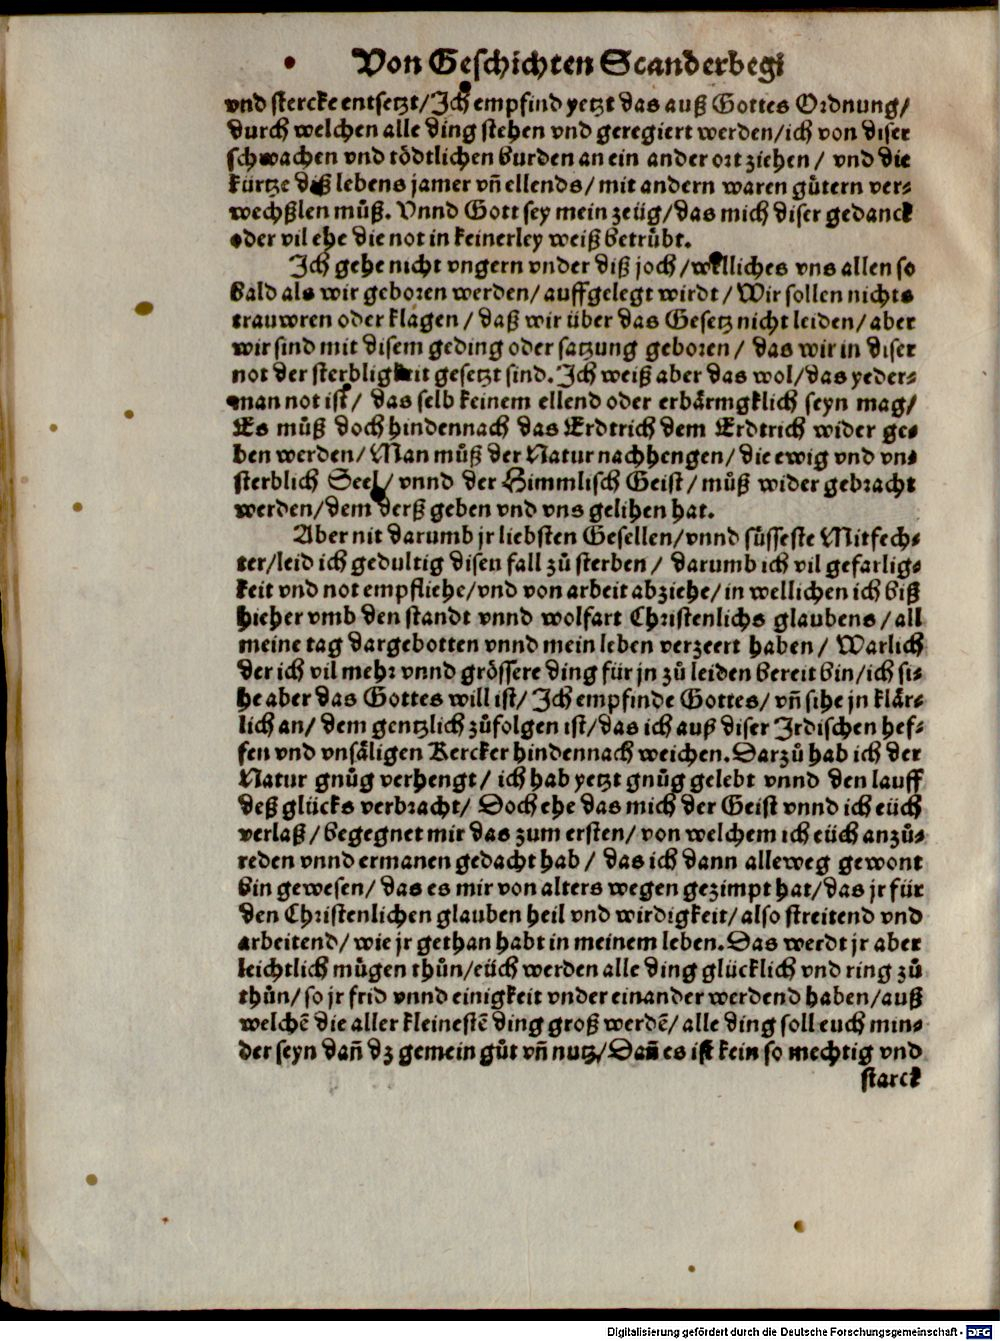 Von Geschichten Scanderbegi
vnd stercke entsetzt/Ich empfind yetzt das auß Gottes Ordnung/
durch welchen alle ding stehen vnd geregiert werden/ich von diser
schwachen vnd tödtlichen burden an ein ander ort ziehen/ vnd die
kürtze diß lebens jamer vñ ellends/ mit andern waren gůtern ver-
wechßlen můß. Vnnd Gott sey mein zeüg/das mich diser gedanck
oder vil ehe die not in keinerley weiß betrůbt.
Ich gehe nicht vngern vnder diß joch/welliches vns allen so
bald als wir geboren werden/ auffgelegt wirdt/ Wir sollen nichts
trauwren oder klagen/ daß wir über das Gesetz nicht leiden/ aber
wir sind mit disem geding oder satzung geboren/ das wir in diser
not der sterbligkeit gesetzt sind. Ich weiß aber das wol/das yeder-
man not ist/ das selb keinem ellend oder erbärmgklich seyn mag/
Es můß doch hindennach das Erdtrich dem Erdtrich wider ge-
ben werden/ Man můß der Natur nachhengen/ die ewig vnd vn-
sterblich Seel/ vnnd der Himmlisch Geist/ můß wider gebracht
werden/dem derß geben vnd vns gelihen hat.
Aber nit darumb jr liebsten Gesellen/vnnd sůsseste Mitfech-
ter/leid ich gedultig disen fall zů sterben/ darumb ich vil gefarlig-
keit vnd not empfliehe/vnd von arbeit abziehe/in wellichen ich biß
hieher vmb den standt vnnd wolfart Christenlichs glaubens/ all
meine tag dargebotten vnnd mein leben verzeert haben/ Warlich
der ich vil mehr vnnd grössere ding für jn zů leiden bereit bin/ich si-
he aber das Gottes will ist/ Ich empfinde Gottes/ vñ sihe jn klär-
lich an/ dem gentzlich zůfolgen ist/das ich auß diser Irdischen hef-
fen vnd vnsäligen Kercker hindennach weichen. Darzů hab ich der
Natur gnůg verhengt/ ich hab yetzt gnůg gelebt vnnd den lauff
deß glücks verbracht/ Doch ehe das mich der Geist vnnd ich eüch
verlaß/ begegnet mir das zum ersten/ von welchem ich eüch anzů-
reden vnnd ermanen gedacht hab/ das ich dann alleweg gewont
bin gewesen/ das es mir von alters wegen gezimpt hat/das jr für
den Christenlichen glauben heil vnd wirdigkeit/ also streitend vnd
arbeitend/ wie jr gethan habt in meinem leben. Das werdt jr aber
leichtlich můgen thůn/eüch werden alle ding glücklich vnd ring zů
thůn/ so jr frid vnnd einigkeit vnder einander werdend haben/auß
welchē die aller kleinestē ding groß werdē/ alle ding soll euch min-
der seyn dañ dz gemein gůt vñ nutz/ Dañ es ist kein so mechtig vnd
starck
Digitalisierung gefördert durch die Deutsche Forschungsgemeinschaft - DFG